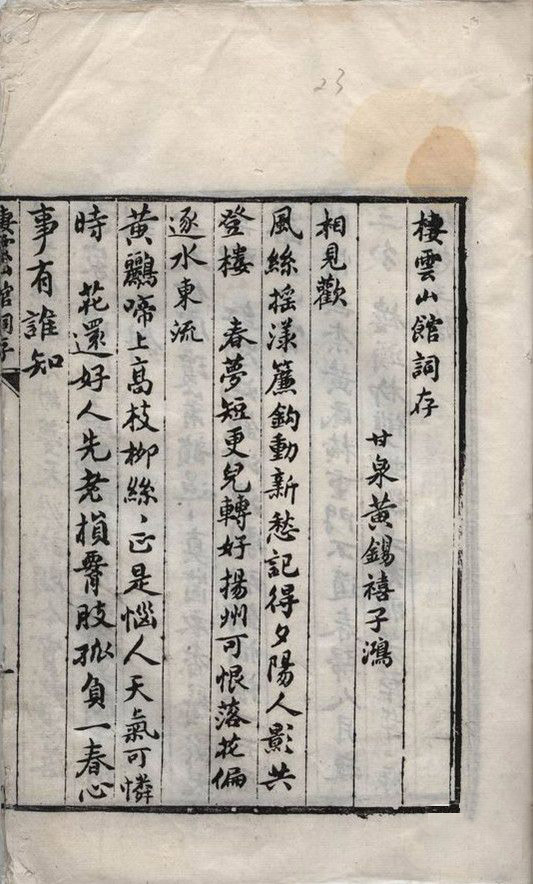 23
棲雲山館詞存
甘泉黃錫禧子鴻
相見歡
風絲搖漾簾鈎動新愁記得夕陽人影共
登樓　春夢短更兒轉好揚州可恨落花偏
逐水東流
黃鸝啼上高枝柳絲〻正是惱人天氣可憐
時　花還好人先老損肢孤負一春心
事有誰知
棲雲山館詞存